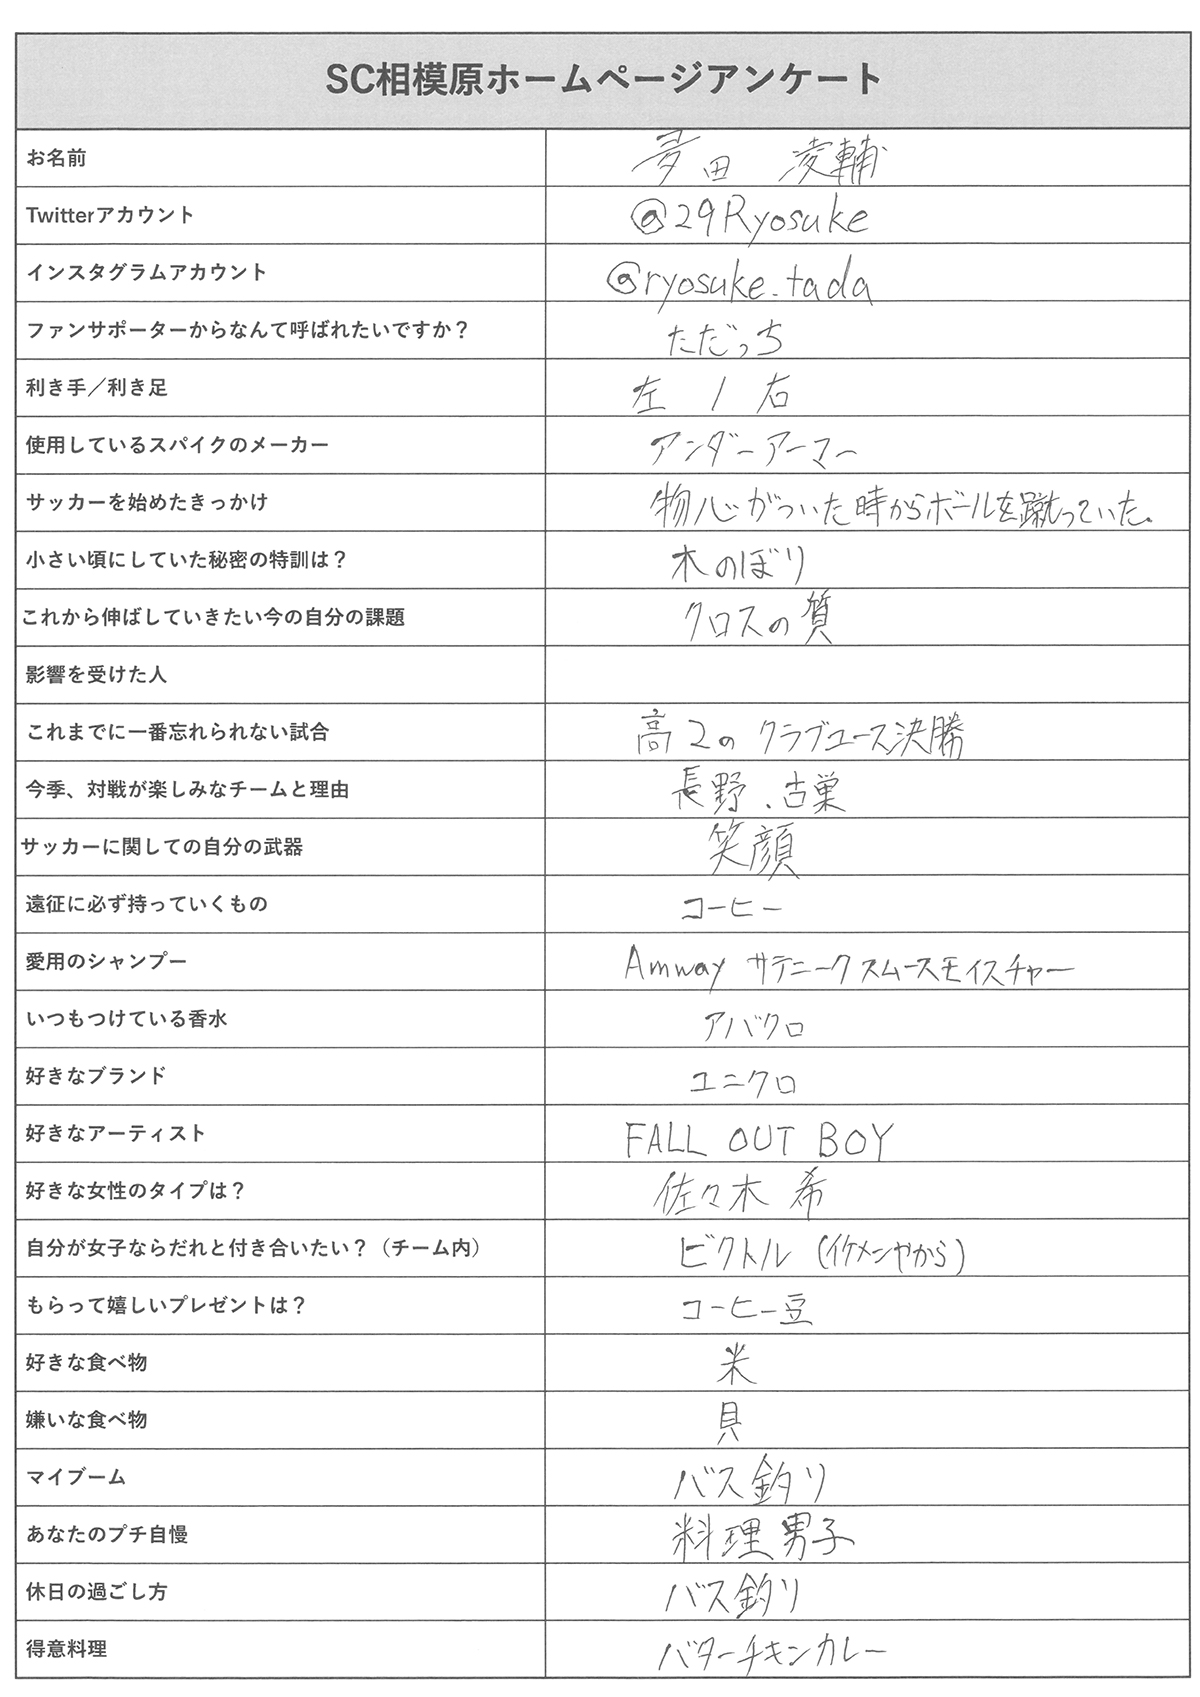 SC相模原ホームページアンケート
お名前 多田 凌輔
Twitterアカウント @29Ryosuke
インスタグラムアカウント @ryosuke.tada
ファンサポーターからなんて呼ばれたいですか？ ただっち
利き手／利き足 左 / 右
使用しているスパイクのメーカー アンダーアーマー
サッカーを始めたきっかけ 物心がついた時からボールを蹴っていた。
小さい頃にしていた秘密の特訓は？ 木のぼり
これから伸ばしていきたい今の自分の課題 クロスの質
影響を受けた人
これまでに一番忘れられない試合 高2の クラブユース決勝
今季、対戦が楽しみなチームと理由 長野、古巣
サッカーに関しての自分の武器 笑顔
遠征に必ず持っていくもの コーヒー
愛用のシャンプー Amway サテニーク スムースモイスチャー
いつもつけている香水 アバクロ
好きなブランド ユニクロ
好きなアーティスト FALL OUT BOY
好きな女性のタイプは？ 佐々木 希
自分が女子ならだれと付き合いたい？（チーム内） ビクトル (イケメンやから)
もらって嬉しいプレゼントは？ コーヒー豆
好きな食べ物 米
嫌いな食べ物 貝
マイブーム バス釣り
あなたのプチ自慢 料理男子
休日の過ごし方 バス釣り
得意料理 バターチキンカレー